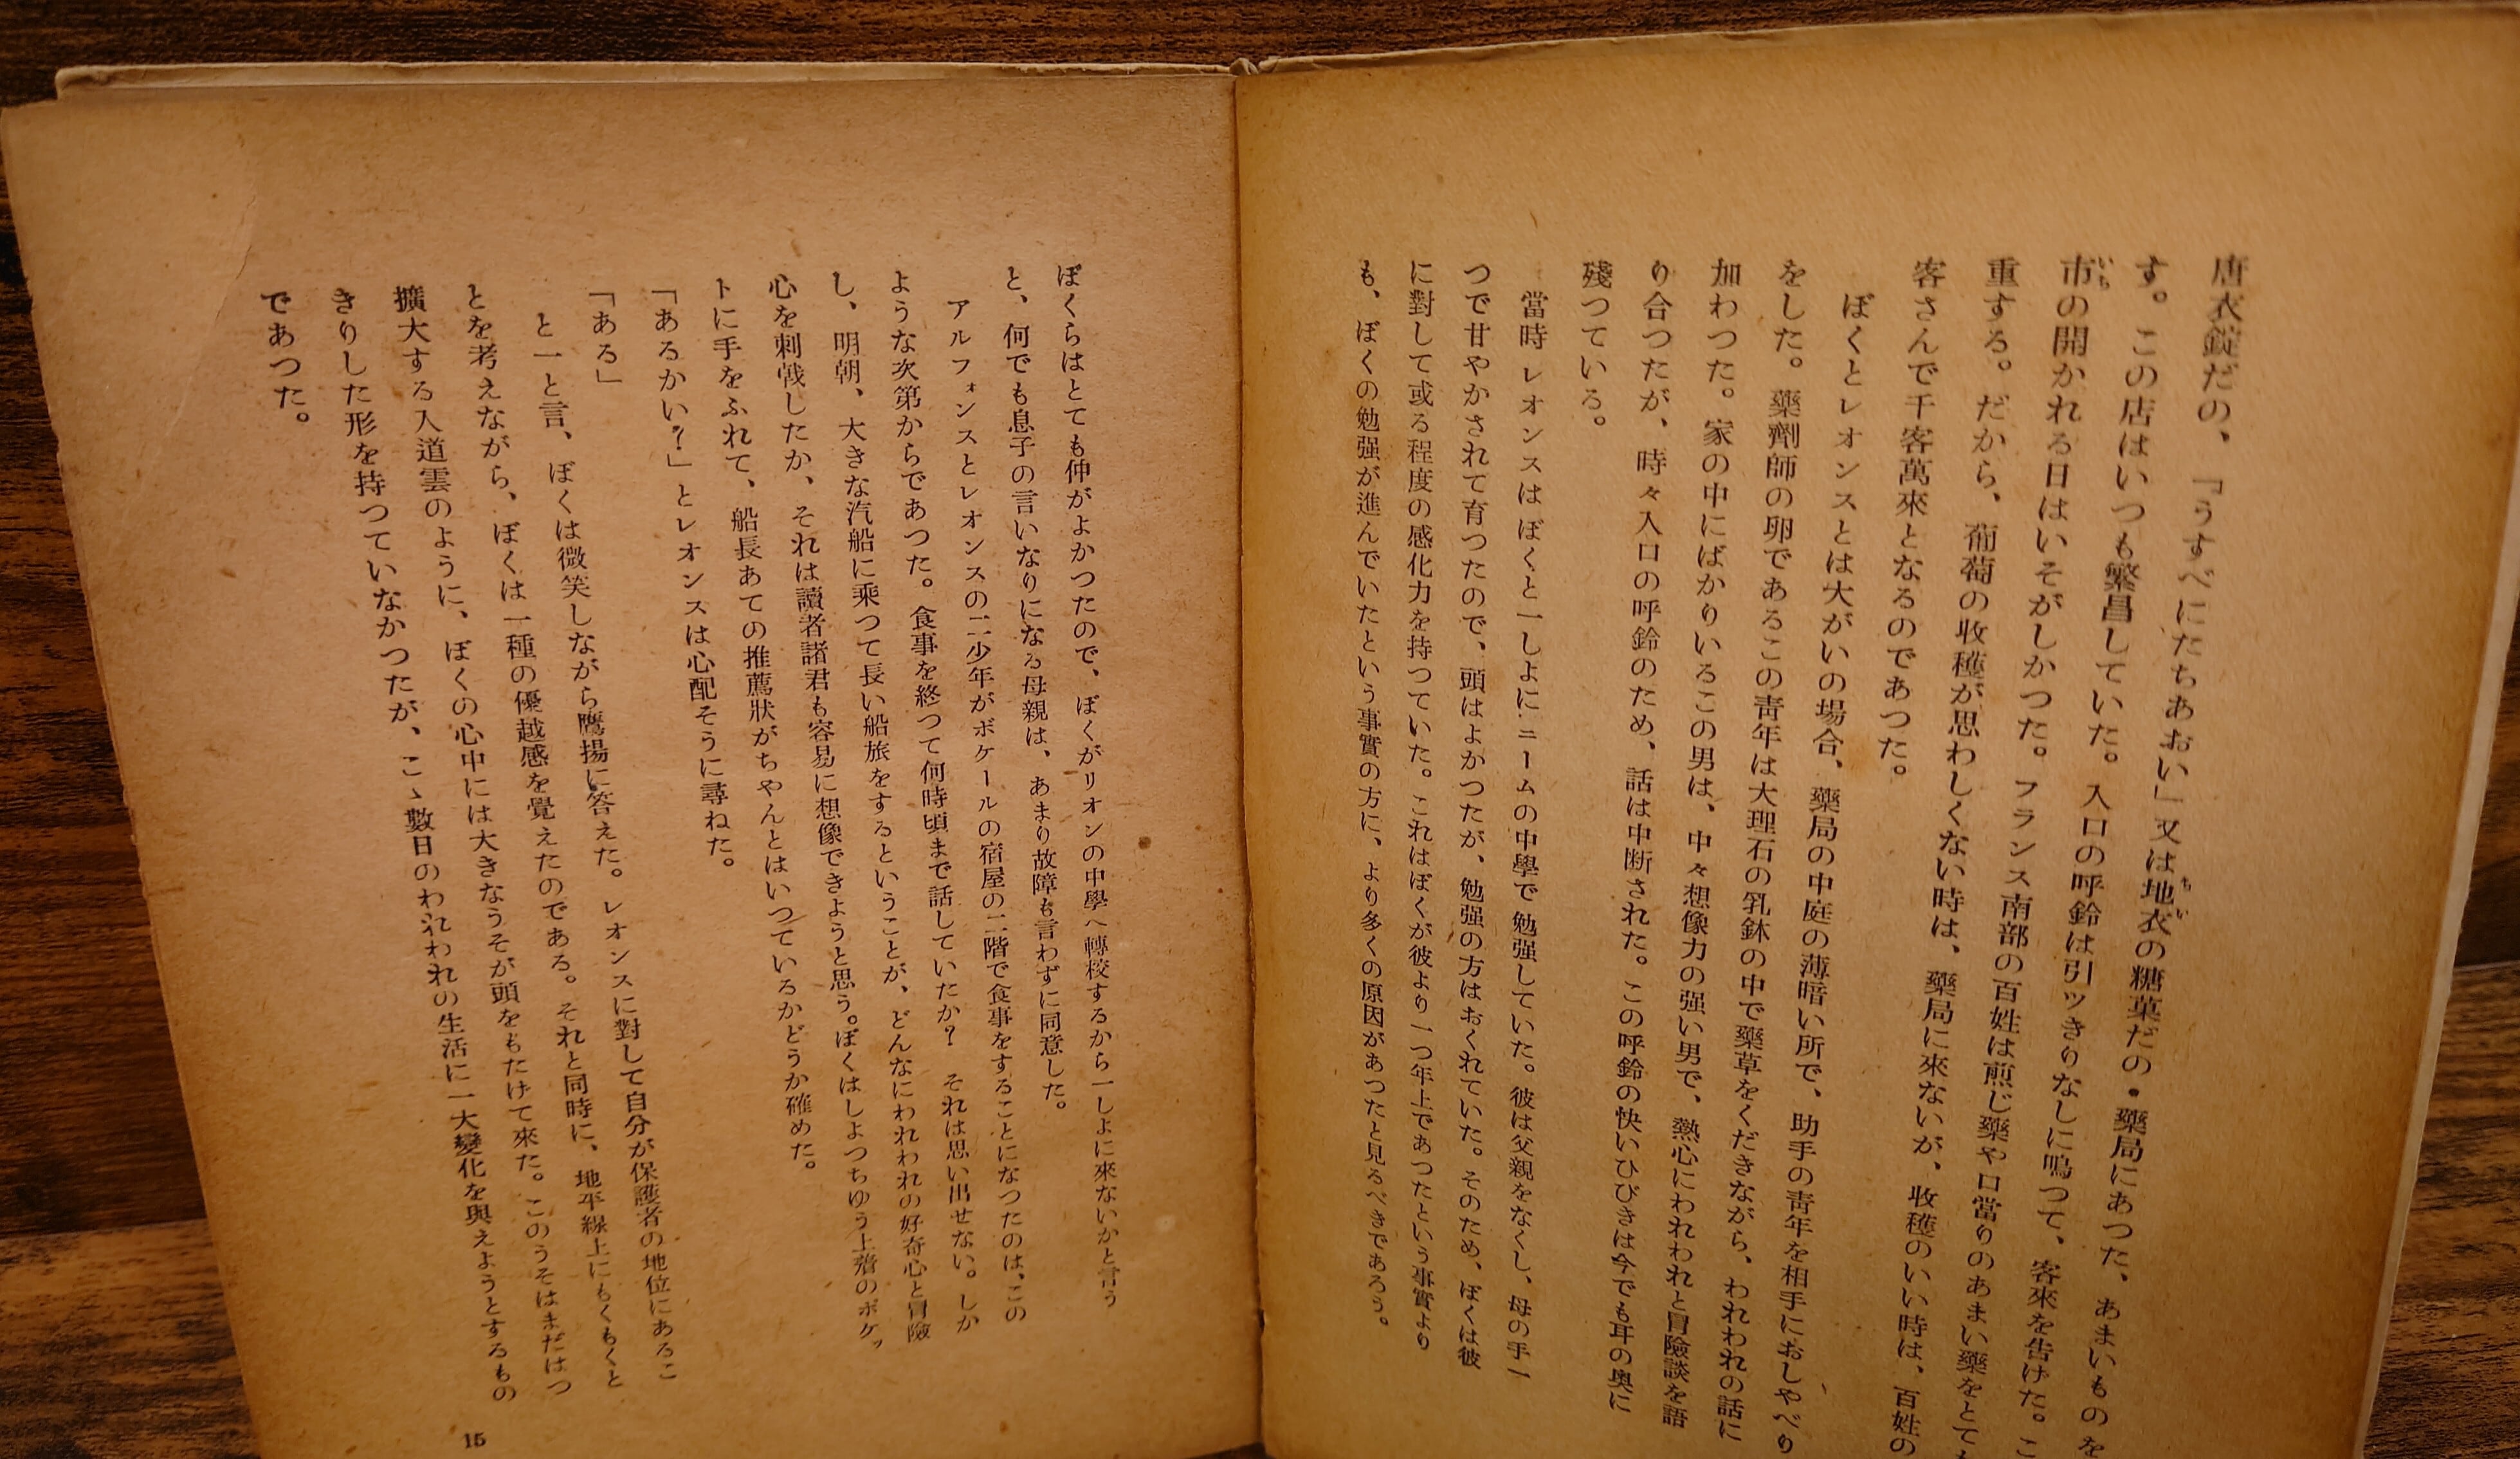 唐衣錠だの、「うすべにたちあおい」又は地衣の糖菓だの・藥局にあつた、あまいものを
す。この店はいつも繁昌していた。入口の呼鈴は引ッきりなしに鳴つて、客來を告げた。こ
市の開かれる日はいそがしかつた。フランス南部の百姓は煎じ藥や口當りのあまい藥をとても
重する。だから、葡萄の收穫が思わしくない時は、藥局に來ないが、收穫のいい時は、百姓の
客さんで千客萬來となるのであつた。
ぼくとレオンスとは大がいの場合、藥局の中庭の薄暗い所で、助手の靑年を相手におしやべり
をした。藥劑師の卵であるこの靑年は大理石の乳鉢の中で藥草をくだきながら、われわれの話に
加わつた。家の中にばかりいるこの男は、中々想像力の强い男で、熱心にわれわれと冒險談を語
り合つたが、時々入口の呼鈴のため、話は中断された。この呼鈴の快いひびきは今でも耳の奥に
殘つている。
當時レオンスはぼくと一しよにニームの中學で勉强していた。彼は父親をなくし、母の手一
つで甘やかされて育つたので、頭はよかつたが、勉强の方はおくれていた。そのため、ぼくは彼
に對して或る程度の感化力を持つていた。これはぼくが彼より一つ年上であつたという事實より
も、ぼくの勉强が進んでいたという事實の方に、より多くの原因があつたと見るべきであろう。
ぼくらはとても仲がよかつたので、ぼくがリオンの中學へ轉校するから一しよに來ないかと言う
と、何でも息子の言いなりになる母親は、あまり故障も言わずに同意した。
アルフォンスとレオンスの二少年がボケールの宿屋の二階で食事をすることになつたのは、この
ような次第からであつた。食事を終つて何時頃まで話していたか？　それは思い出せない。しか
し、明朝、大きな汽船に乘つて長い船旅をするということが、どんなにわれわれの好奇心と冒險
心を刺戟したか、それは讀者諸君も容易に想像できようと思う。ぼくはしよつちゆう上着のポケッ
トに手をふれて、船長あての推薦狀がちやんとはいつているかどうか確めた。
「あるかい？」とレオンスは心配そうに尋ねた。
「ある」
と一と言、ぼくは微笑しながら鷹揚に答えた。レオンスに對して自分が保護者の地位にあるこ
とを考えながら、ぼくは一種の優越感を覺えたのである。それと同時に、地平線上にもくもくと
擴大する入道雲のように、ぼくの心中には大きなうそが頭をもたげて來た。このうそはまだはつ
きりした形を持つていなかつたが、こゝ數日のわれわれの生活に一大變化を與えようとするもの
であつた。
15